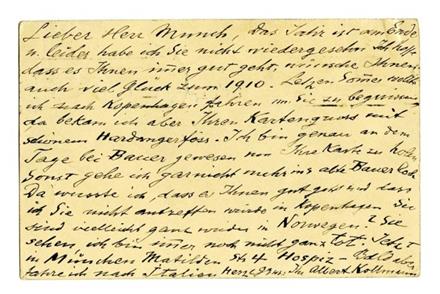 Lieber Herr Munch, das Jahr ist am Ende
u. leider habe ich Sie nicht wiedergesehen. Ich hoffe,
dass es Ihnen immer gut geht, wünsche Ihnen
auch viel Glück zum 1910. Letzten Sommer wollte
ich nach Kopenhagen fahren um Sie zu begrüssen
da bekam ich aber Ihren Kartengruss mit
schönem Hardangerfoss. Ich bin genau an dem
Tage bei Bauer gewesen um Ihre Karte zu holen
sonst gehe ich garnicht mehr ins alte Bauer Lok.
Da wusste ich, dass es Ihnen gut geht und dass
ich Sie nicht antreffen würde in Kopenhagen. Sie
sind vielleicht ganz wieder in Norwegen? Sie
sehen, ich bin immer noch nicht ganz tot. Jetzt
in München Matilden Str 4 Hospiz - bald aber
fahre ich nach Italien Herzl Ihr Albert Kollmann